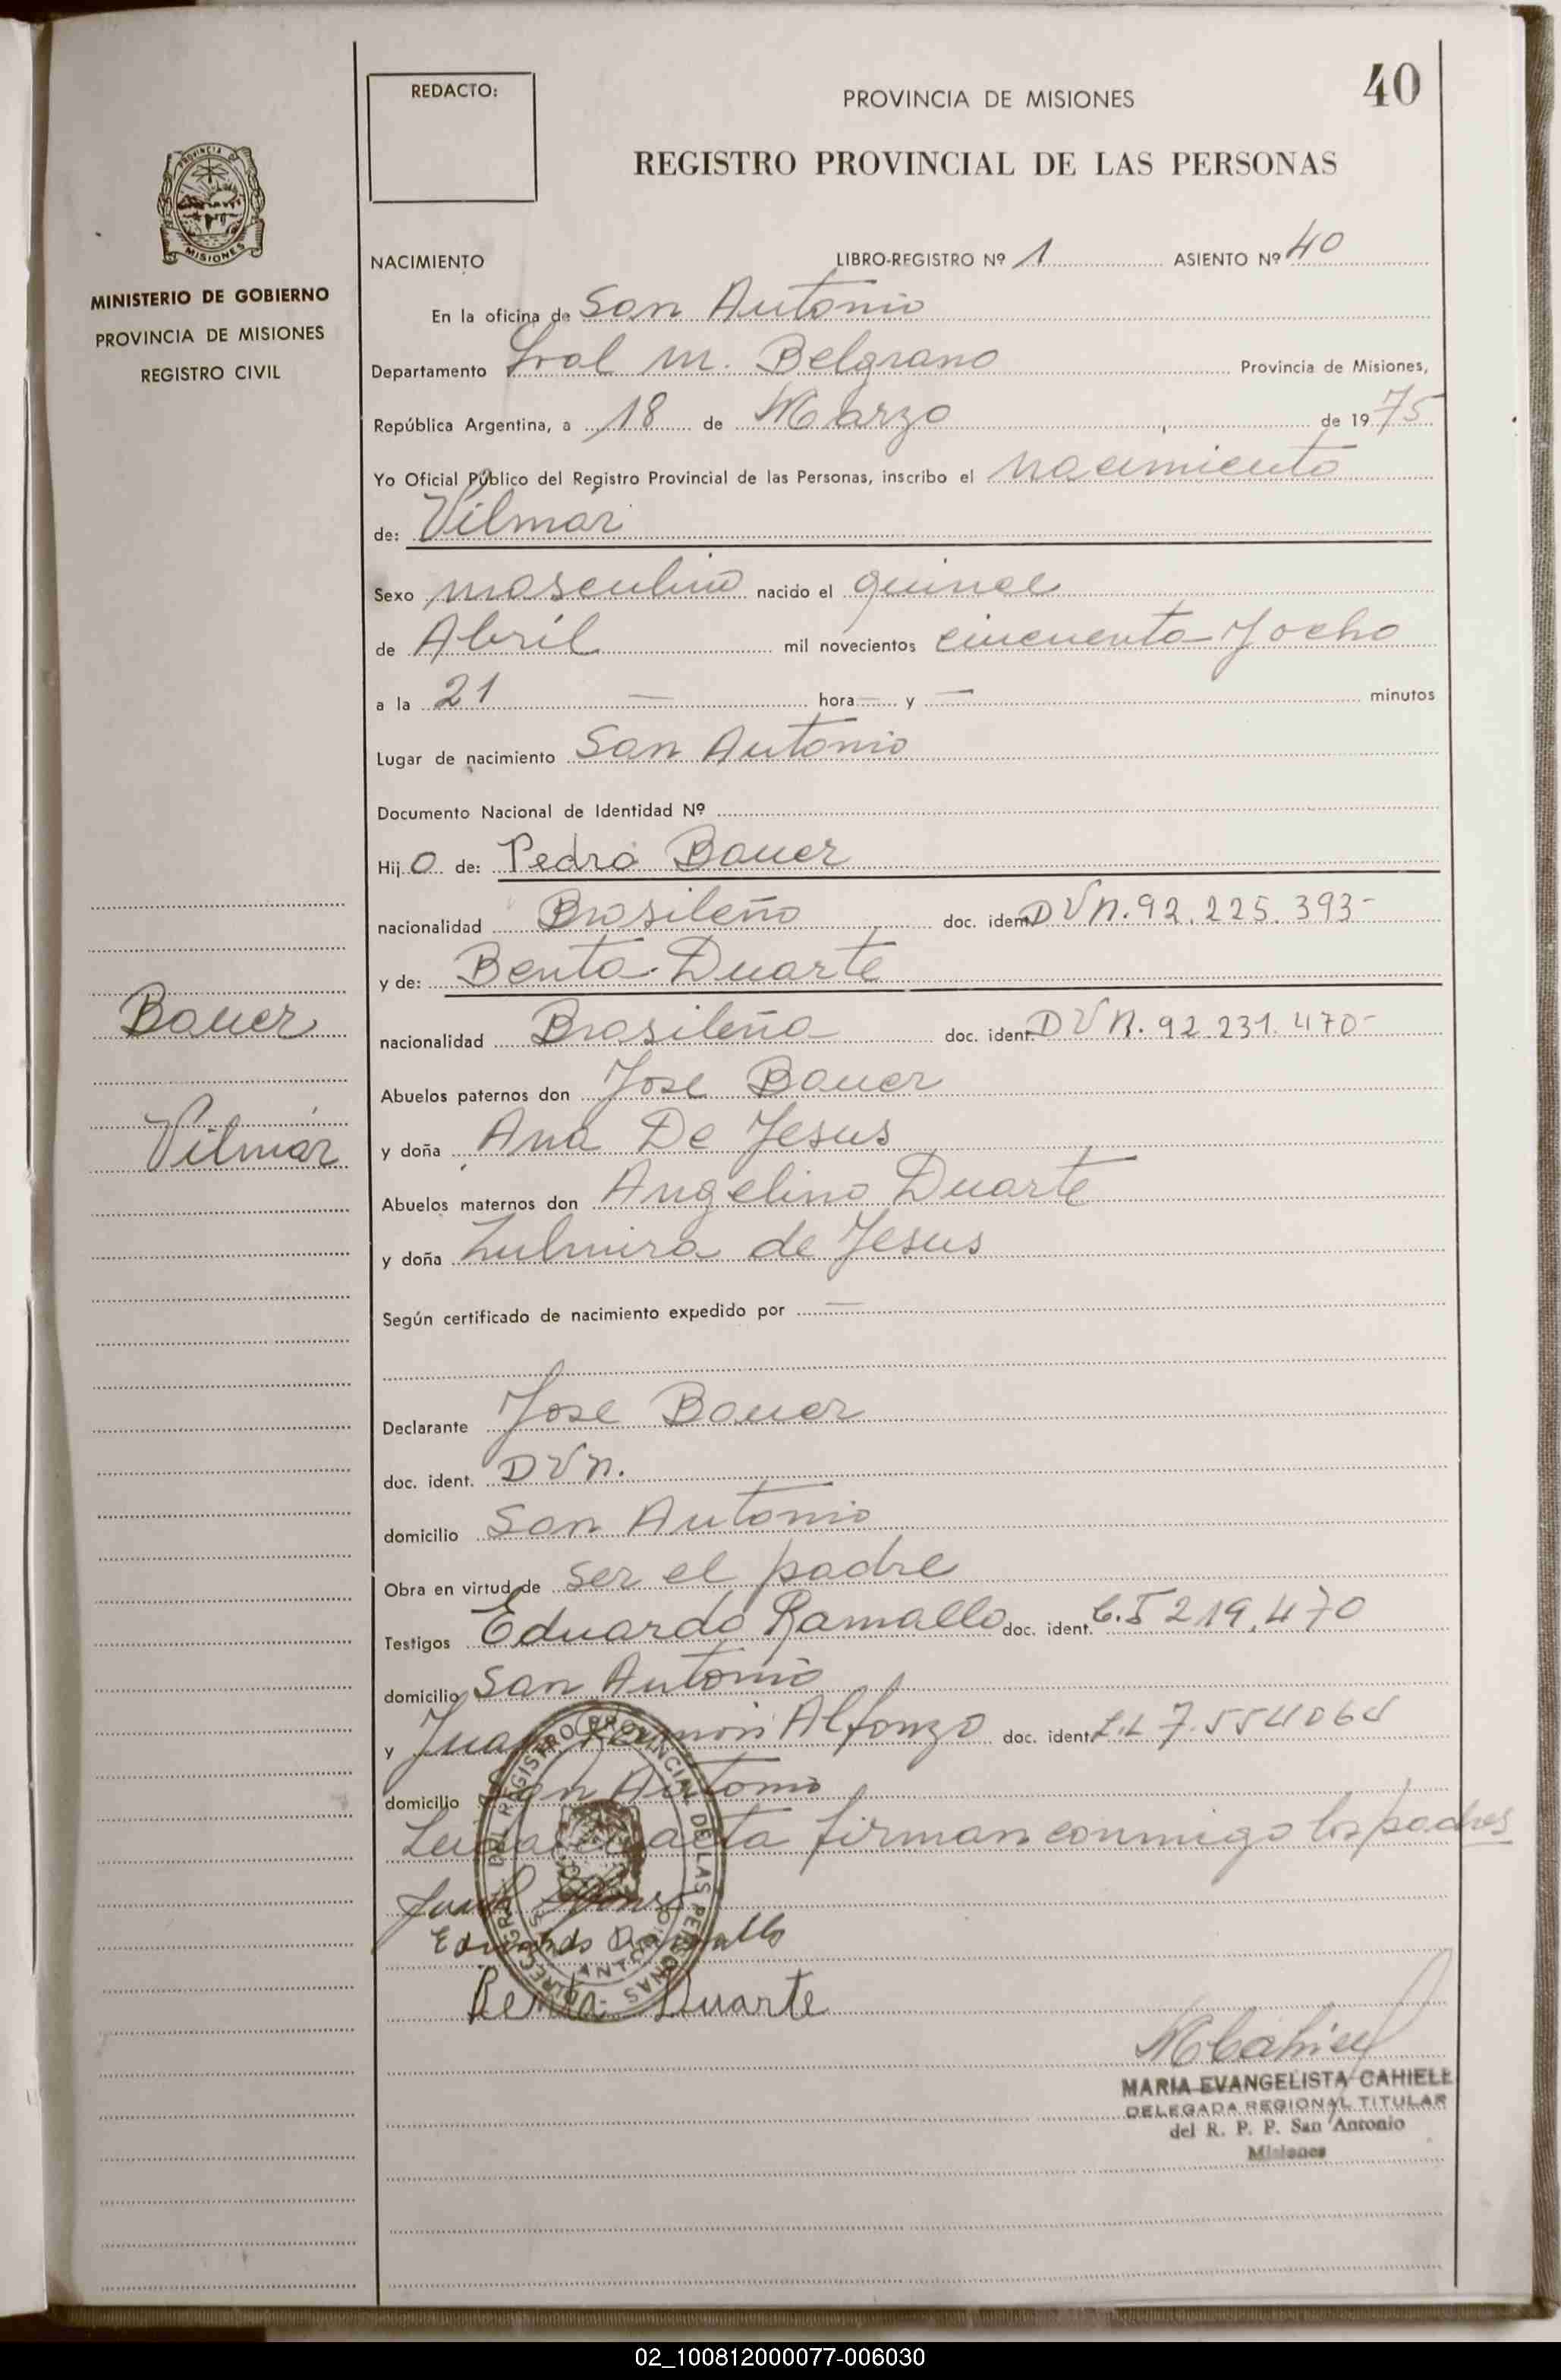 40
REDACTO:
PROVINCIA DE MISIONES
REGISTRO PROVINCIAL DE LAS PERSONAS
PROVINCIA DE
MISIONES
MINISTERIO DE GOBIERNO
PROVINCIA DE MISIONES
REGISTRO CIVIL
NACIMIENTO LIBRO-REGISTRO Nº 1 ASIENTO Nº 40
En la oficina de San Antonio
Departamento Gral M. Belgrano Provincia de Misiones,
República Argentina, a 18 de Marzo de 1975
Yo Oficial Público del Registro Provincial de las Personas, inscribo el nacimiento
de: Vilmár
Sexo masculino nacido el quince
de Abril mil novecientos cincuenta y ocho
a la 21 — hora — y — minutos
Lugar de nacimiento San Antonio
Documento Nacional de Identidad Nº
Hijo de: Pedro Bauer
nacionalidad Brasileño doc. ident. DVN. 92.225.393-
y de: Benta Duarte
Bauer
nacionalidad Brasileña doc. ident. DVN. 92.231.470-
Abuelos paternos don Jose Bauer
Vilmár
y doña Ana De Jesus
Abuelos maternos don Angelino Duarte
y doña Zulmira de Jesus
Según certificado de nacimiento expedido por —
Declarante Jose Bauer
doc. ident. DVN.
domicilio San Antonio
Obra en virtud de ser el padre
Testigos Eduardo Ramallo doc. ident. C.I 219.470
domicilio San Antonio
y Juan Ramón Alfonzo doc. ident. L.L 7.554064
domicilio San Antonio
Leida acta firman conmigo los padres
Eduardo Ramallo
Benta Duarte
REGISTRO PROVINCIAL DE LAS PERSONAS
SAN ANTONIO
MARIA EVANGELISTA CAHIELL
DELEGADA REGIONAL TITULAR
del R. P. P. San Antonio
Misiones
02_100812000077-006030